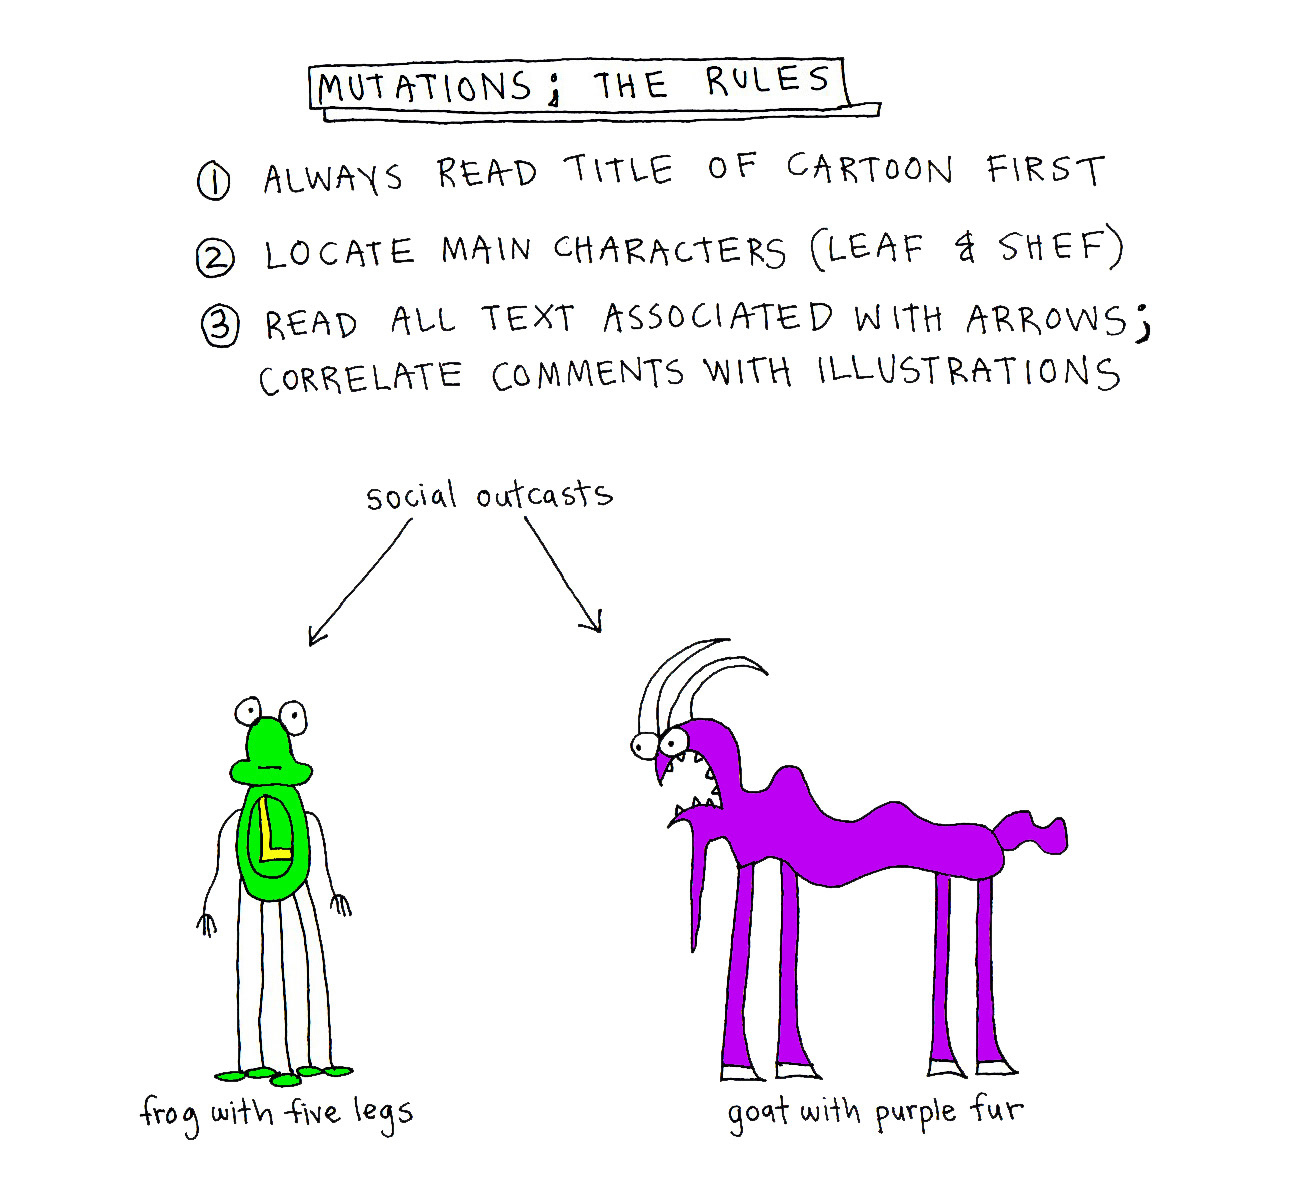 MUTATIONS; THE RULES
① ALWAYS READ TITLE OF CARTOON FIRST
② LOCATE MAIN CHARACTERS (LEAF & SHEF)
③ READ ALL TEXT ASSOCIATED WITH ARROWS;
CORRELATE COMMENTS WITH ILLUSTRATIONS
social outcasts
L
frog with five legs
goat with purple fur